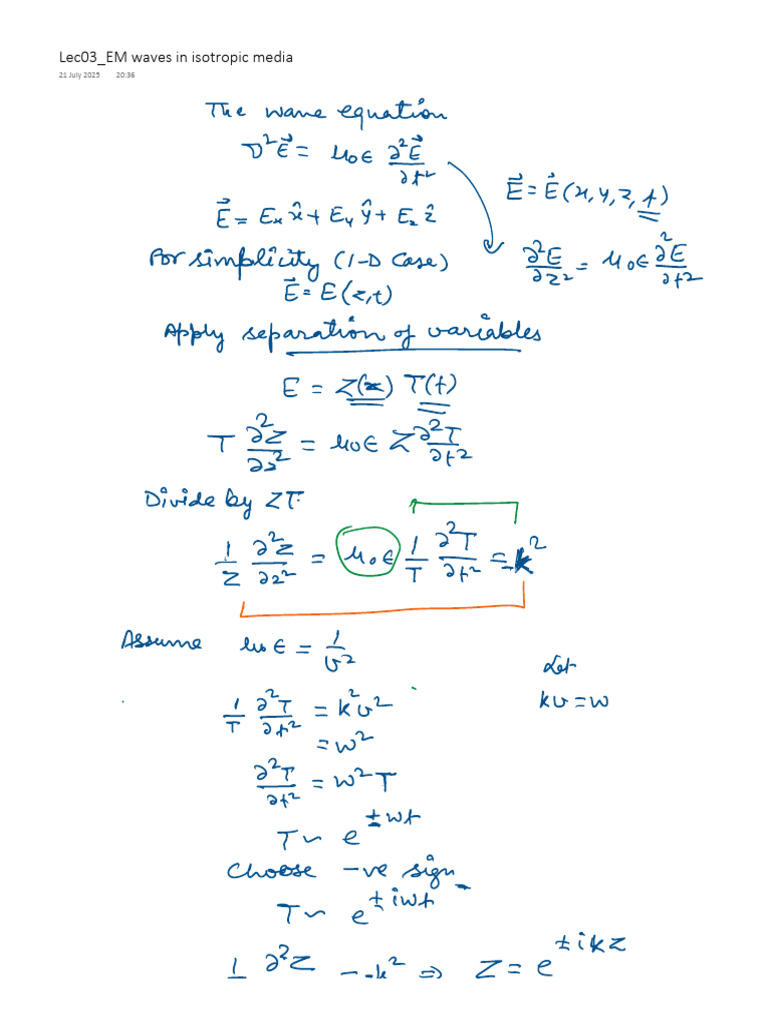 Lec03_EM waves in isotropic media
21 July 2025 20:36
The wave equation
∇²E⃗ = μ₀ε ∂²E⃗/∂t²
E⃗ = E⃗(x, y, z, t)
E⃗ = Eₓ x̂ + E_y ŷ + E_z ẑ
For simplicity (1-D Case)
∂²E/∂z² = μ₀ε ∂²E/∂t²
E⃗ = E(z,t)
Apply separation of variables
E = Z(z) T(t)
T ∂²Z/∂z² = μ₀ε Z ∂²T/∂t²
Divide by ZT.
1/Z ∂²Z/∂z² = μ₀ε 1/T ∂²T/∂t² = -k²
Assume μ₀ε = 1/v²
Let
kv = w
1/T ∂²T/∂t² = k²v²
= w²
∂²T/∂t² = w²T
T ~ e^{±wt}
Choose -ve sign
T ~ e^{±iwt}
1 ∂²Z = -k² ⇒ Z = e^{±ikz}